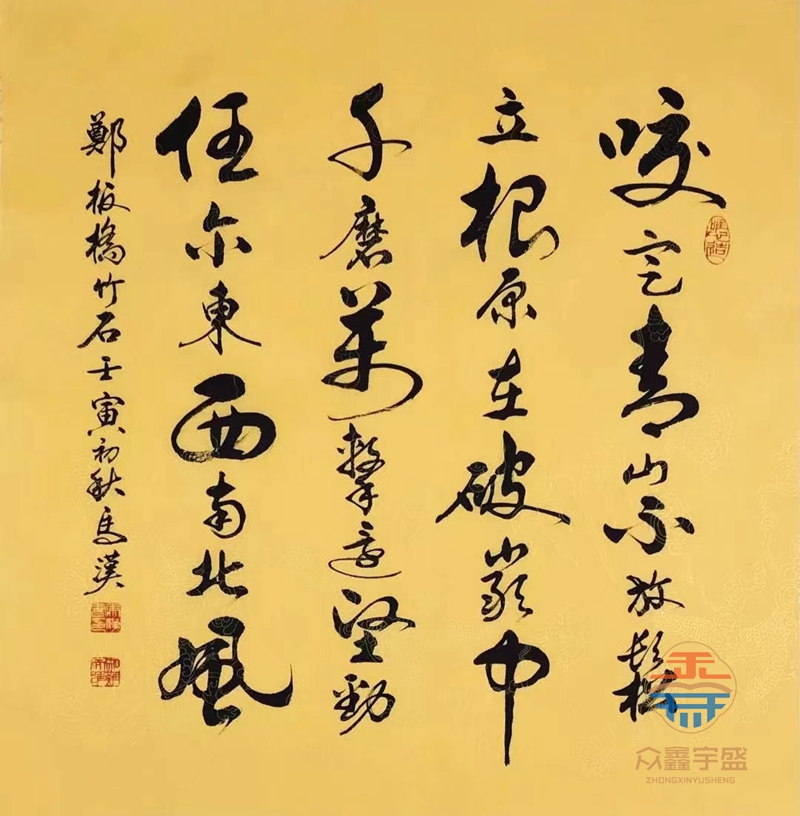 咬定青山不放鬆
立根原在破巖中
千磨萬擊還堅勁
任尔東西南北風
鄭板橋竹石壬寅初秋馬漢
众鑫宇盛
ZHONGXINYUSHENG